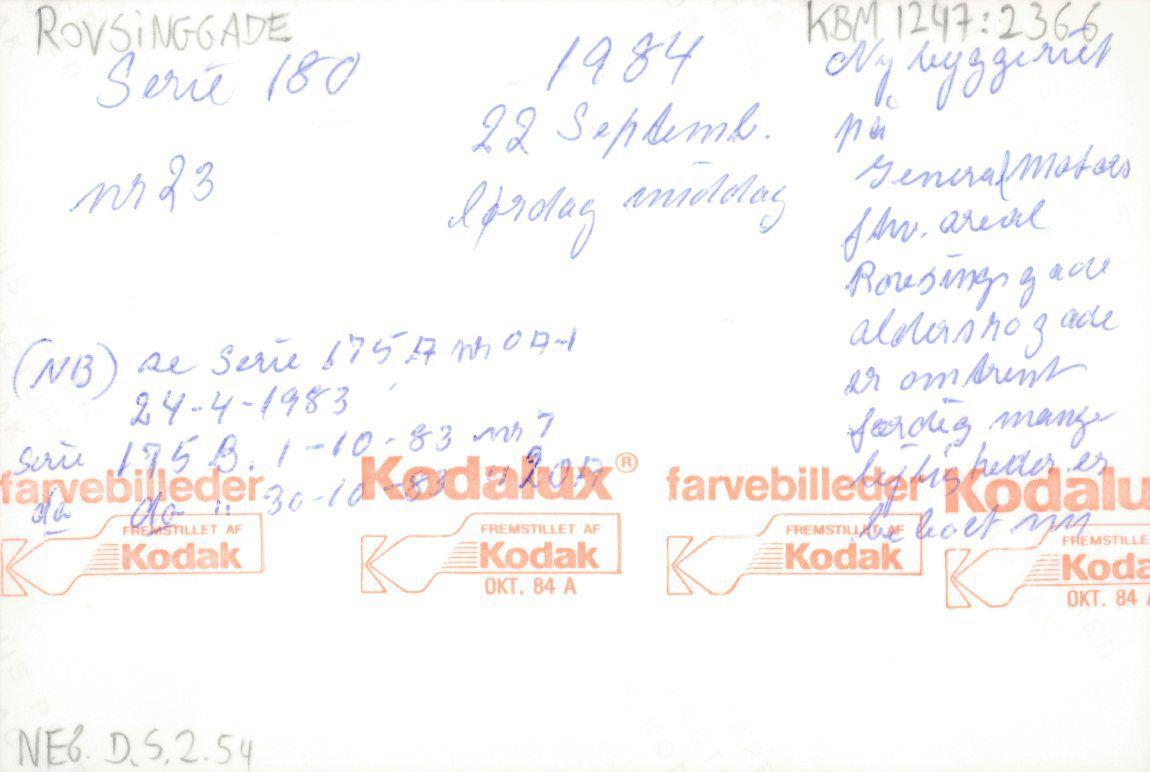 ROVSINGGADE
KBM 1247:2366
Serie 180
nr 23
1984
22 Septemb.
lørdag middag
Ny byggeriet
på
General Motors
fhv. areal
Rovsingsgade
aldersrogade
er omtrent
færdig mange
lejligheder er
beboet nu
(NB) se Serie 175 A nr
24-4-1983
Serie 175 B. 1-10-83 nr 7
do do " 30-10-83
farvebilleder Kodalux® farvebilleder Kodalu
FREMSTILLET AF FREMSTILLET AF FREMSTILLET AF FREMSTILLE
Kodak Kodak Kodak Koda
OKT. 84 A OKT. 84
NEG. D.S.2.54